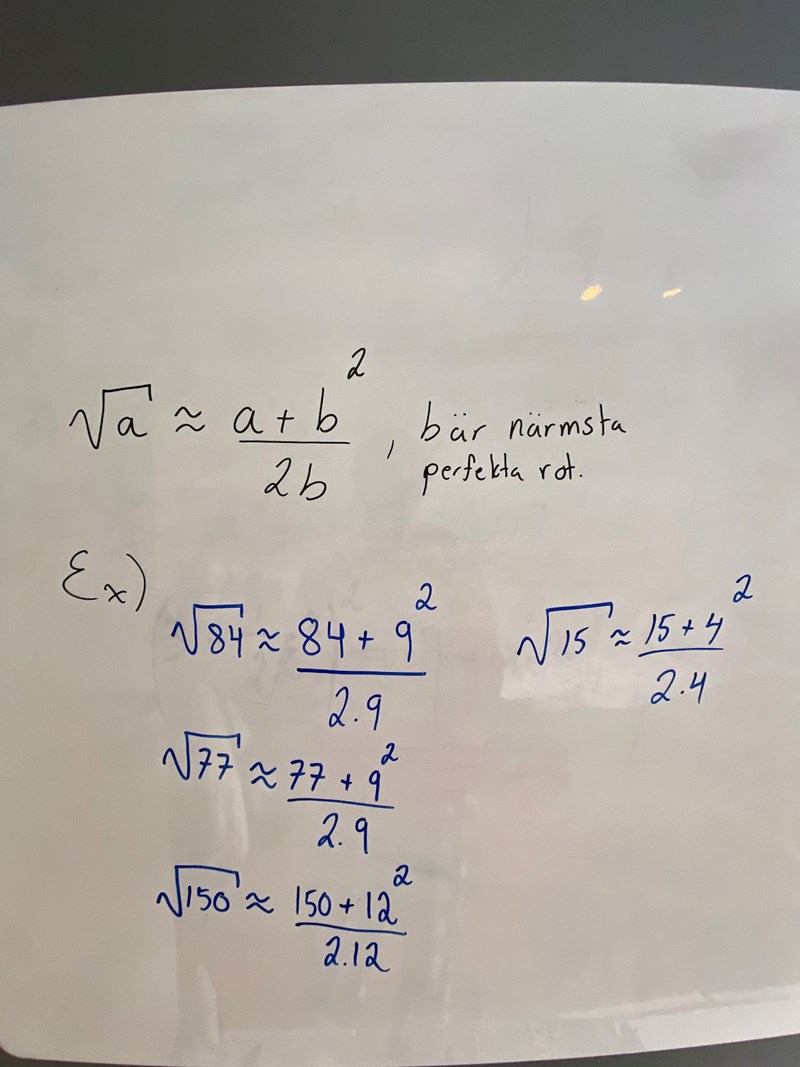 √a ≈ (a + b²)/(2b) , b är närmsta
perfekta rot.
Ex)
√84 ≈ (84 + 9²)/(2.9)
√15 ≈ (15 + 4²)/(2.4)
√77 ≈ (77 + 9²)/(2.9)
√150 ≈ (150 + 12²)/(2.12)